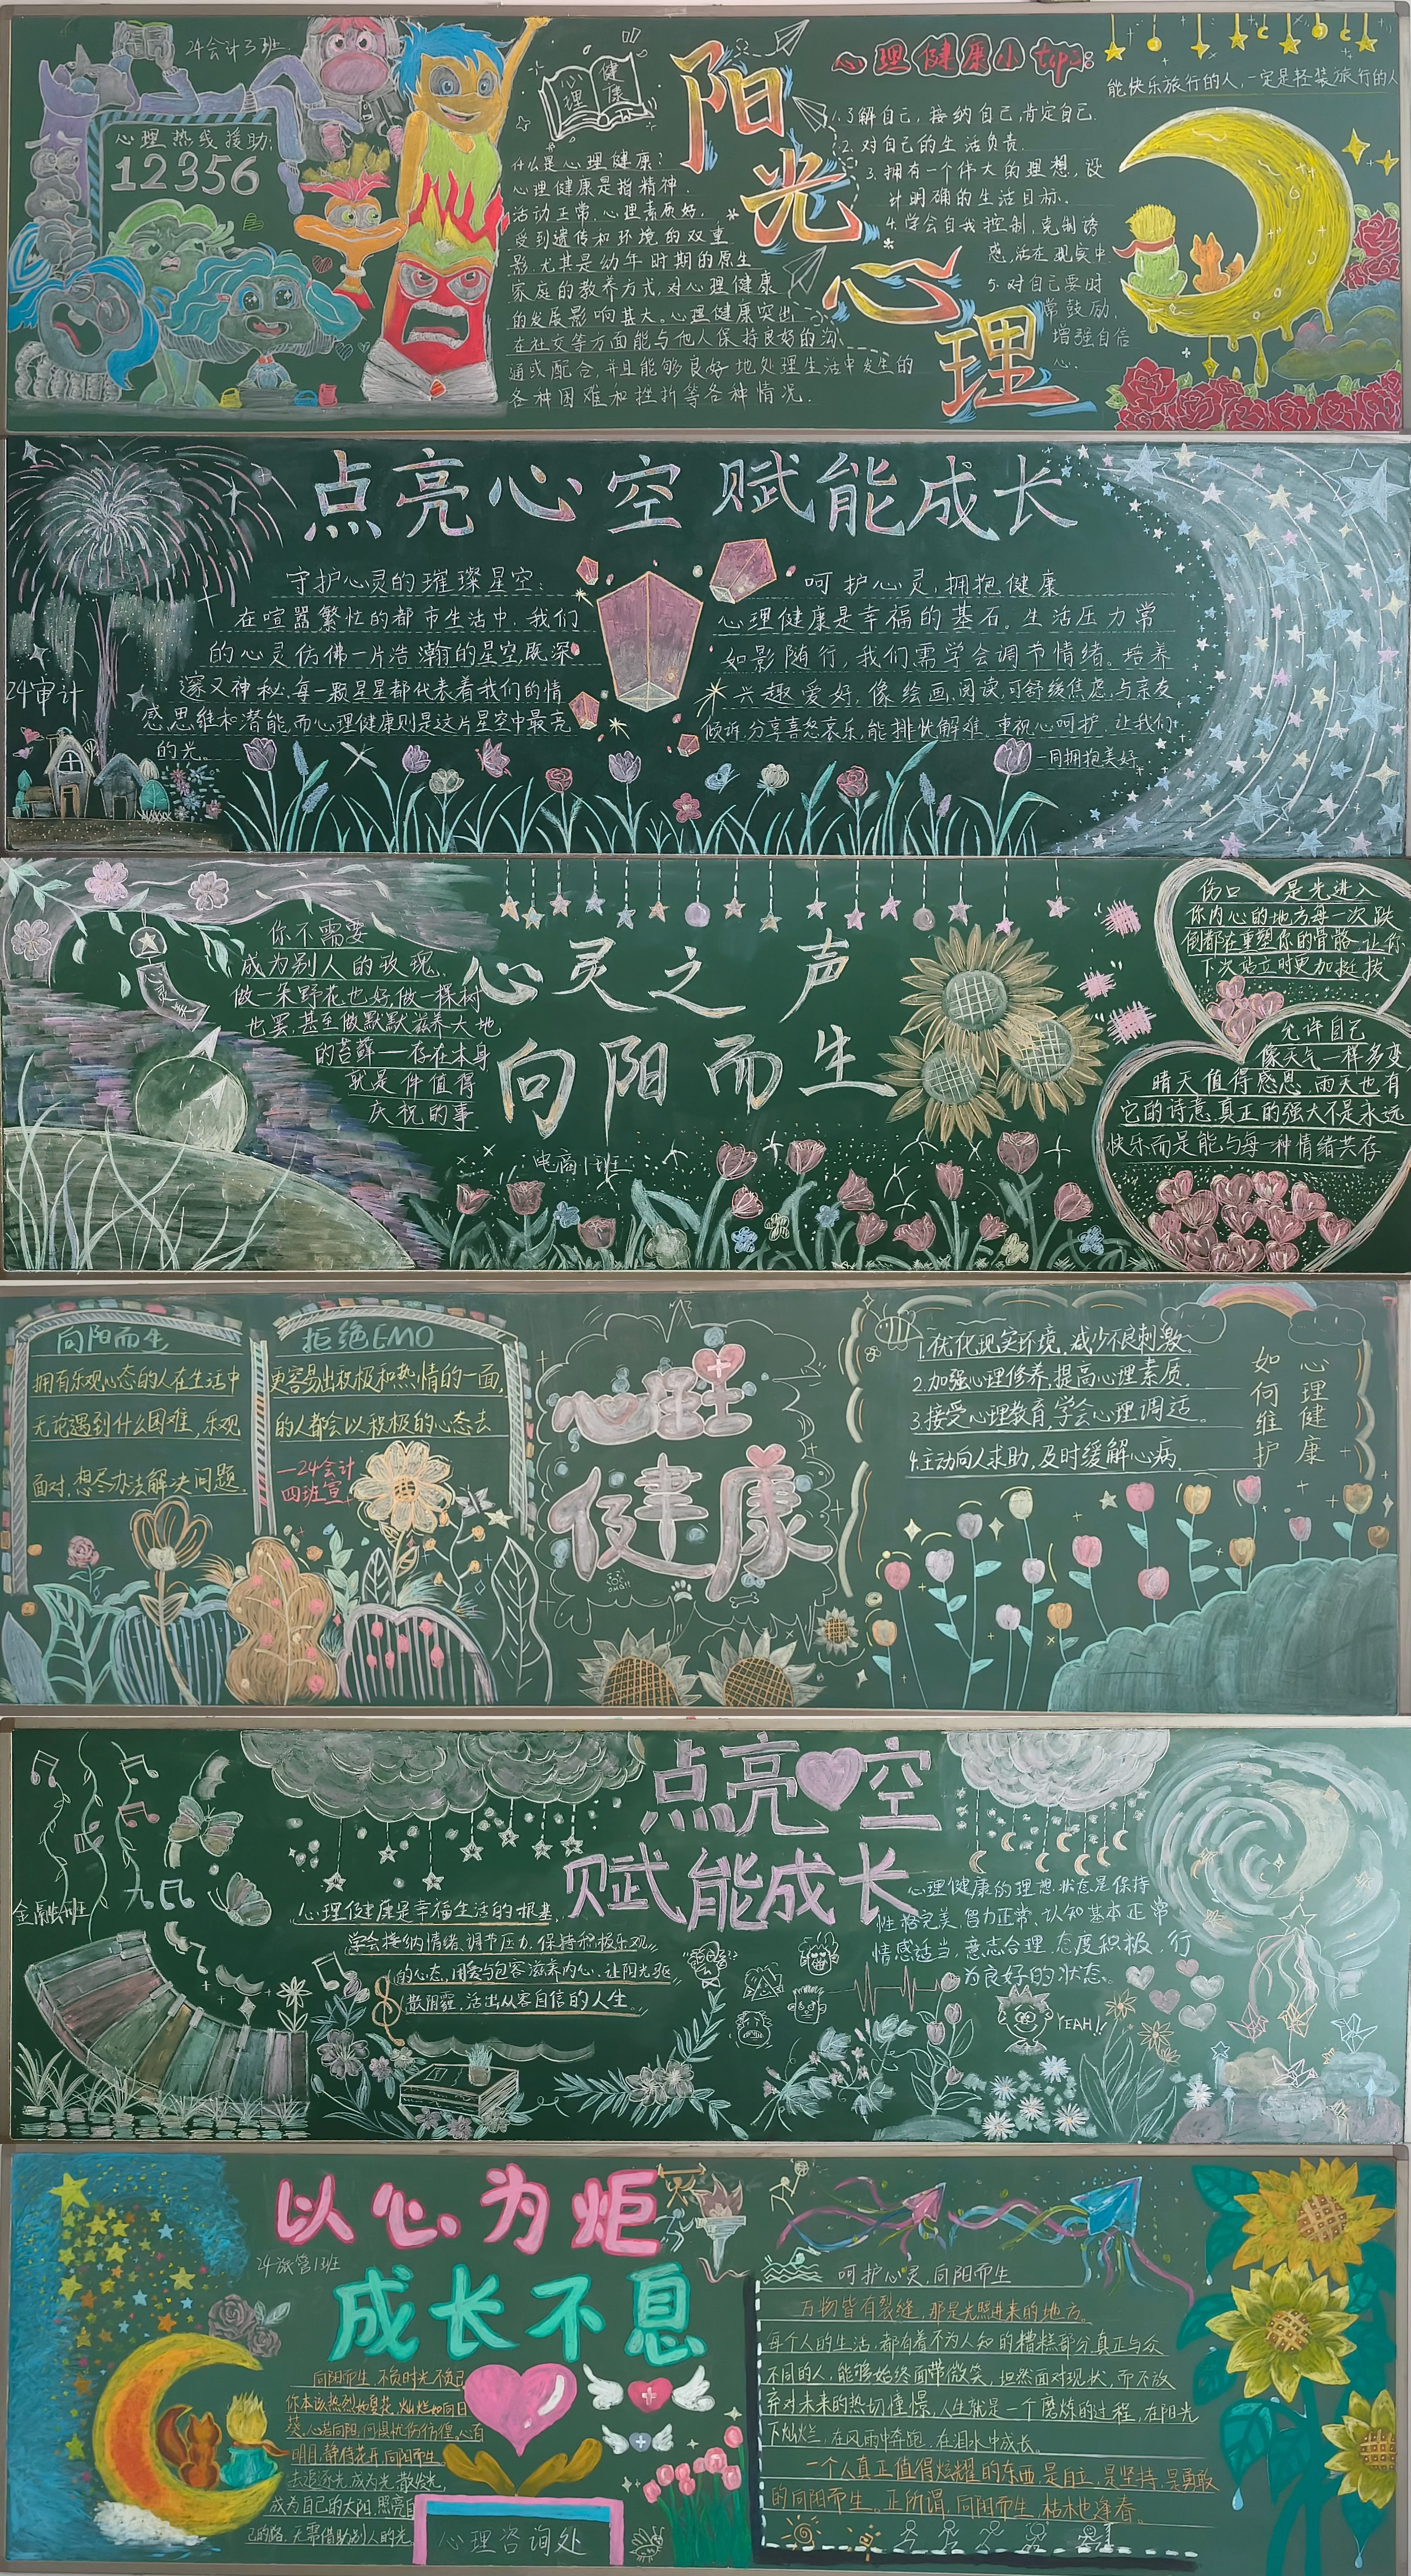 24会计3班
心理热线援助:
12356
心理
健康
什么是心理健康?
心理健康是指精神.
活动正常.心理素质好.
受到遗传和环境的双重
影.尤其是幼年时期的原生
家庭的教养方式,对心理健康
的发展影响甚大。心理健康突出
在社交等方面能与他人保持良好的沟
通或配合,并且能够良好地处理生活中发生的
各种困难和挫折等各种情况.
阳光心理
心理健康小tips:
1.了解自己,接纳自己,肯定自己.
2.对自己的生活负责.
3.拥有一个伟大的理想,设
计明确的生活目标.
4.学会自我控制,克制诱
惑,活在现实中
5.对自己要时
常鼓励,
增强自信
心.
能快乐旅行的人,一定是轻装旅行的人
点亮心空 赋能成长
24审计
守护心灵的璀璨星空:
在喧嚣繁忙的都市生活中,我们
的心灵仿佛一片浩瀚的星空既深
邃又神秘.每一颗星星都代表着我们的情
感思维和潜能,而心理健康则是这片星空中最亮
的光。
呵护心灵,拥抱健康
心理健康是幸福的基石。生活压力常
如影随行,我们需学会调节情绪。培养
兴趣爱好,像绘画,阅读,可舒缓焦虑.与亲友
倾诉,分享喜怒哀乐,能排忧解难.重视心呵护,让我们
一同拥抱美好.
你不需要
成为别人的玫瑰.
做一朵野花也好,做一棵树
也罢.甚至做默默滋养大地
的苔藓——存在本身
就是件值得
庆祝的事
心灵之声
向阳而生
电商1班
伤口 是光进入
你内心的地方每一次跌
倒都在重塑你的骨骼 让你
下次站立时更加挺拔
允许自己
像天气一样多变
晴天值得感恩,雨天也有
它的诗意真正的强大不是永远
快乐而是能与每一种情绪共存
向阳而生
拥有乐观心态的人在生活中
无论遇到什么困难,乐观
面对,想尽办法解决问题.
拒绝EMO
更容易出积极和热情的一面,
的人都会以积极的心态去
—24会计
四班宣
心理
健康
1.优化现实环境,减少不良刺激。
2.加强心理修养,提高心理素质.
3.接受心理教育,学会心理调适。
4.主动向人求助,及时缓解心病.
如何维护
心理健康
点亮 空
赋能成长
心理健康是幸福生活的根基.
学会接纳情绪,调节压力,保持积极乐观
的心态,用爱与包容滋养内心,让阳光驱
散阴霾,活出从容自信的人生。
心理健康的理想状态是保持
性格完美,智力正常、认知基本正常
情感适当,意志合理,态度积极,行
为良好的状态。
YEAH!!
以心为炬
成长不息
24旅管1班
向阳而生.不负时光不负己
你本该热烈如夏花,灿烂如向日
葵.心若向阳,何惧忧伤彷徨。心有
明月,静待花开,向阳而生
去追逐光,成为光,散发光,
成为自己的太阳.照亮自
己的路.无需借助别人的光.
心理咨询处
呵护心灵,向阳而生
万物皆有裂缝,那是光照进来的地方。
每个人的生活,都有着不为人知的糟糕部分真正与众
不同的人,能够始终面带微笑,坦然面对现状,而不放
弃对未来的热切憧憬,人生就是一个磨炼的过程,在阳光
下灿烂,在风雨中奔跑,在泪水中成长。
一个人真正值得炫耀的东西,是自立,是坚持,是勇敢
的向阳而生。正所谓,向阳而生,枯木也逢春。